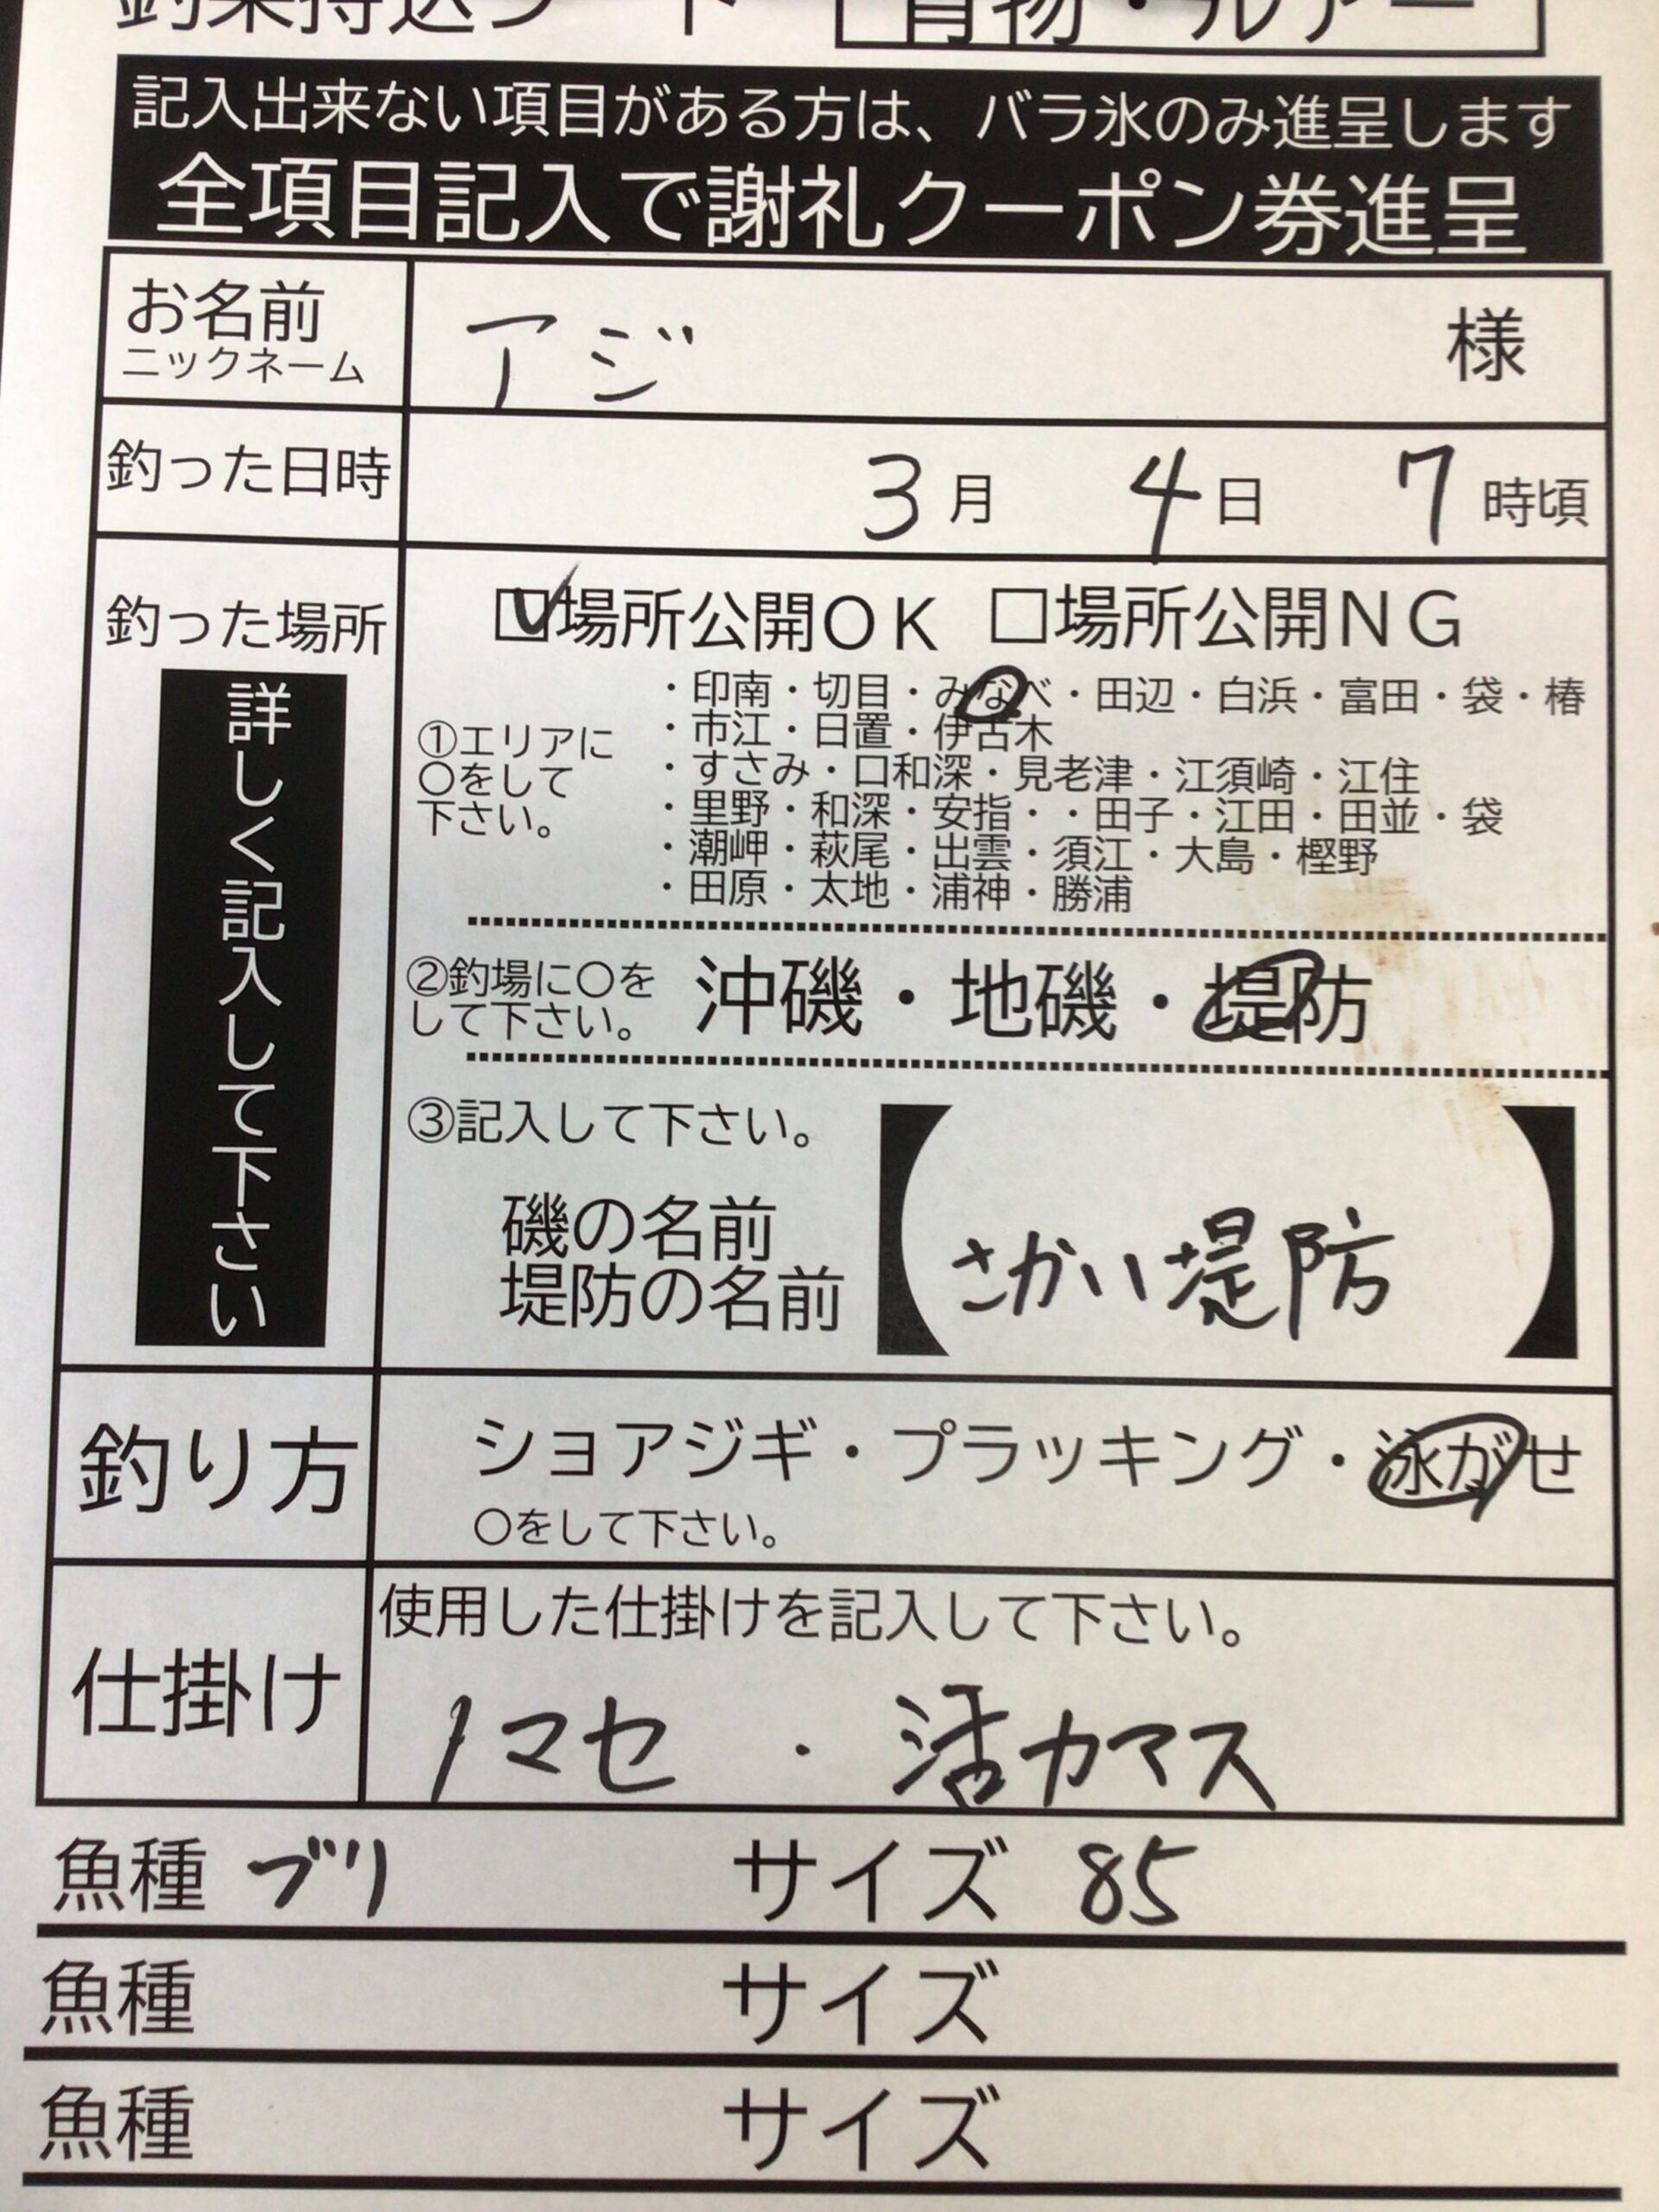 釣果持込シート 青物・ルアー
記入出来ない項目がある方は、バラ氷のみ進呈します
全項目記入で謝礼クーポン券進呈
お名前
ニックネーム
アジ 様
釣った日時 3月 4日 7時頃
釣った場所 ☑場所公開OK □場所公開NG
詳しく記入して下さい
①エリアに
〇をして
下さい。
・印南・切目・みなべ・田辺・白浜・富田・袋・椿
・市江・日置・伊古木
・すさみ・口和深・見老津・江須崎・江住
・里野・和深・安指・・田子・江田・田並・袋
・潮岬・萩尾・出雲・須江・大島・樫野
・田原・太地・浦神・勝浦
②釣場に〇を
して下さい。
沖磯・地磯・堤防
③記入して下さい。
磯の名前
堤防の名前
【さかい堤防】
釣り方 ショアジギ・プラッキング・泳がせ
〇をして下さい。
仕掛け 使用した仕掛けを記入して下さい。
ノマセ ・ 活カマス
魚種 ブリ サイズ 85
魚種 サイズ
魚種 サイズ